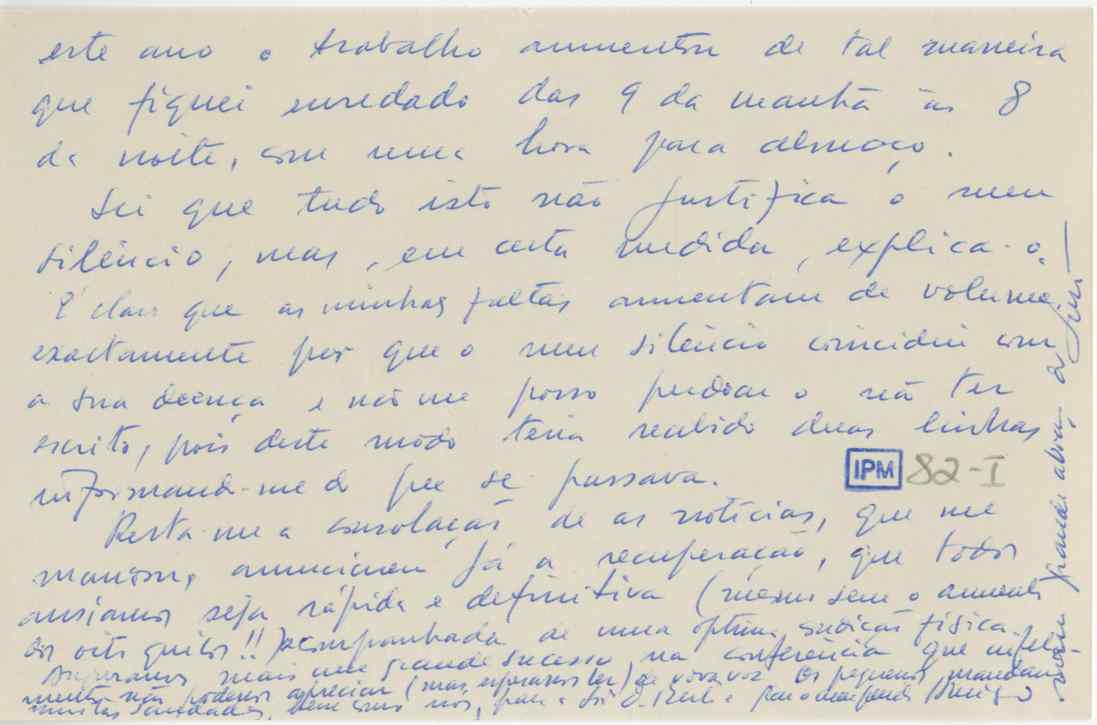 este ano o trabalho aumentou de tal maneira
que fiquei enredado das 9 da manhã às 8
da noite, com uma hora para almoço.
Sei que tudo isto não justifica o meu
silêncio, mas, em certa medida, explica-o.
É claro que as minhas faltas aumentam de volume
exactamente por que o meu silêncio coincidiu com
a sua doença e não me posso perdoar o não ter
escrito, pois deste modo teria recebido duas linhas
informando-me do que se passava.
IPM 82-I
Resta-me a consolação de as notícias, que me
mandou, anunciarem já a recuperação, que todos
ansiamos seja rápida e definitiva (mesmo sem o aumento
dos oito quilos!!) acompanhada de uma óptima condição física.
Auguramos mais um grande sucesso na conferência que infeliz-
mente não podemos apreciar (mas esperamos ler) de viva voz. Os pequenos mandam
muitas saudades, bem como nós, para a Sr.ª D. e para o meu Amigo
um grande abraço do